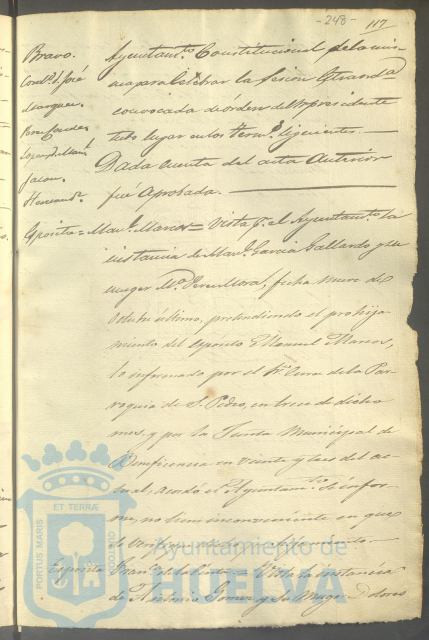 -248-
117
Bravo.
Cond.e d. José
Marquez.
Hernand.z
Ayuntam.to Constitucional de la mis-
ma para celebrar la sesion extraord.a
convocada de órden del Sr presidente
tubo lugar en los term.s siguientes.
Dada cuenta del acta anterior
fué aprobada.
Esposito = Man.l Marcos = Vista p.r el Ayuntam.to la
instancia de Man.l Garcia Gallardo y su
muger M.a Perez Moral, fecha nueve de
Octubre último, pretendiendo el prohija-
miento del esposito Manuel Marcos,
lo informado por el Sr Cura de la Par-
roquia de S. Pedro, en trece de dicho
mes, y por la Junta Municipal de
Beneficencia en veinte y tres del ac-
tual, acordó el Ayuntam.to se infor-
me, no tiene inconveniente en que
se verifique
Esposita Vista la instancia
de Antonio Gomez y su muger Dolores
PORTUS MARIS ET TERRÆ CUSTODIO
Ayuntamiento de
HUELVA